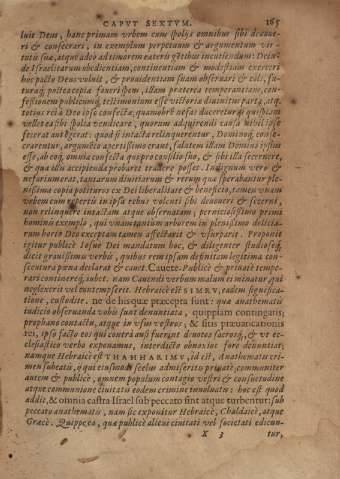 CAPVT SEXTVM. 165
luit Deus, hanc primam vrbem cum spolijs omnibus sibi deuoue-
ri & consecrari, in exemplum perpetuum & argumentum vir-
tutis suæ, atque adeo ad timorem cæteris gentibus incutiendum: Deinde
Israelitarum obedientiam, continentiam & modestiam exerceri
hoc pacto Deus voluit, & prouidentiam suam obseruari & coli, fu-
turáq; pacta copia fauoris spem, illam præterea temperantiam, con-
fessionem publicam, testimonium esse victoriæ diuinitus partæ, atq;
totius rei à Deo ipso confectæ. quamobrē nefas duceretur si quispiam
vellet ea sibi spolia vendicare, quorum adquirendi causa nihil ipse
fecerat aut egerat: quod si intacta relinquerentur, Dominoq; conse-
crarentur, argumēto apertissimo erant, salutem illam Domini ipsius
esse, ab eoq; omnia confecta quoque consilio suo, & sibi illa secernere,
& qua ellis accipienda probaret tradere posse. Indignum vero &
nefarium erat, tantarum diuitiarum & rerum quæ sperabantur ple-
nissima copia potituros ex Dei liberalitate & beneficio, tamen vnam
vrbem cum repertis in ipsa rebus volenti sibi deuoueri & secerni,
non relinquere intactam atque obseruatam; perniciosissimo primi
hominis exemplo, qui vnam tantùm arborem in plenissimo delicia-
rum horto Deo exceptam tamen affectarit & vsurparit. Proponit
igitur publicè Iosue Dei mandatum hoc, & diligenter studioséq;
dicit grauissimis verbis, quibus rem ipsam definitam legitima con-
secuturos pœna declarat & cauet. Cauete. Publicè & priuatè tempe-
rari continerēq; iubet. nam Cauendi verbum malum ei minatur qui
neglexerit vel contempserit. Hebraicè est SIMRV, eadem significa-
tione, custodite. ne de hisque præcepta sunt: quæ anathematis
iudicio obseruanda vobis sunt denuntiata, quippiam contingatis;
prophano contactu, atque in vsus vestros, & sitis præuaricationis
rei, ipso facto eos qui contrà ausi fuerint diuotos sacrosq;, & vt ec-
clesiastico verbo exponamus, interdicto obnoxios fore denuntiat;
namque Hebraicè est THAHHARIMV, id est, Anathematis cri-
men subeatis, si qui eiusmodi scelus admiserit priuatè communiter
autem & publicè, omnem populum contagio vestri & consuetudine
atque communione ciuitatis eodem crimine tenebitur: hoc est quod
addit, & omnia castra Israel sub peccato sint atque turbentur: sub
peccato anathematis, nam sic exponitur Hebraicè, Chaldaicè, atque
Græcè. Quippe ea, quæ publicè alicui ciuitati vel societati edicun-
X 3 tur,